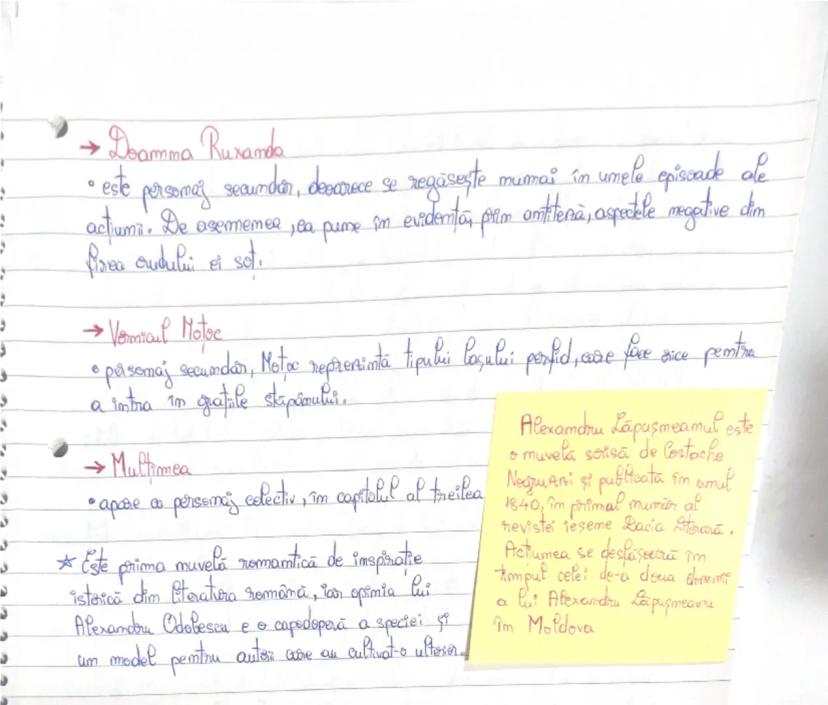 → Doamna Ruxanda
• este personaj secundar, deoarece se regăsește numai în unele episoade ale
acțiunii. De asemenea, ea pune în evidență, prin antiteză, aspectele negative din
firea crudului ei soț.
→ Vornicul Moțoc
• personaj secundar, Moțoc reprezintă tipului lașului perfid, care face orice pentru
a intra în grațiile stăpânului.
→ Mulțimea
• apare ca personaj colectiv, în capitolul al treilea
★ Este prima nuvelă romantică de inspirație
istorică din literatura română, iar opinia lui
Alexandru Odobescu e o capodoperă a speciei și
un model pentru autorii care au cultivat-o ulterior.
Alexandru Lăpușneanul este
o nuvelă scrisă de Costache
Negruzzi și publicată în anul
1840, în primul număr al
revistei ieșene Dacia Literară.
Acțiunea se desfășoară în
timpul celei de-a doua domnii
a lui Alexandru Lăpușneanu
în Moldova